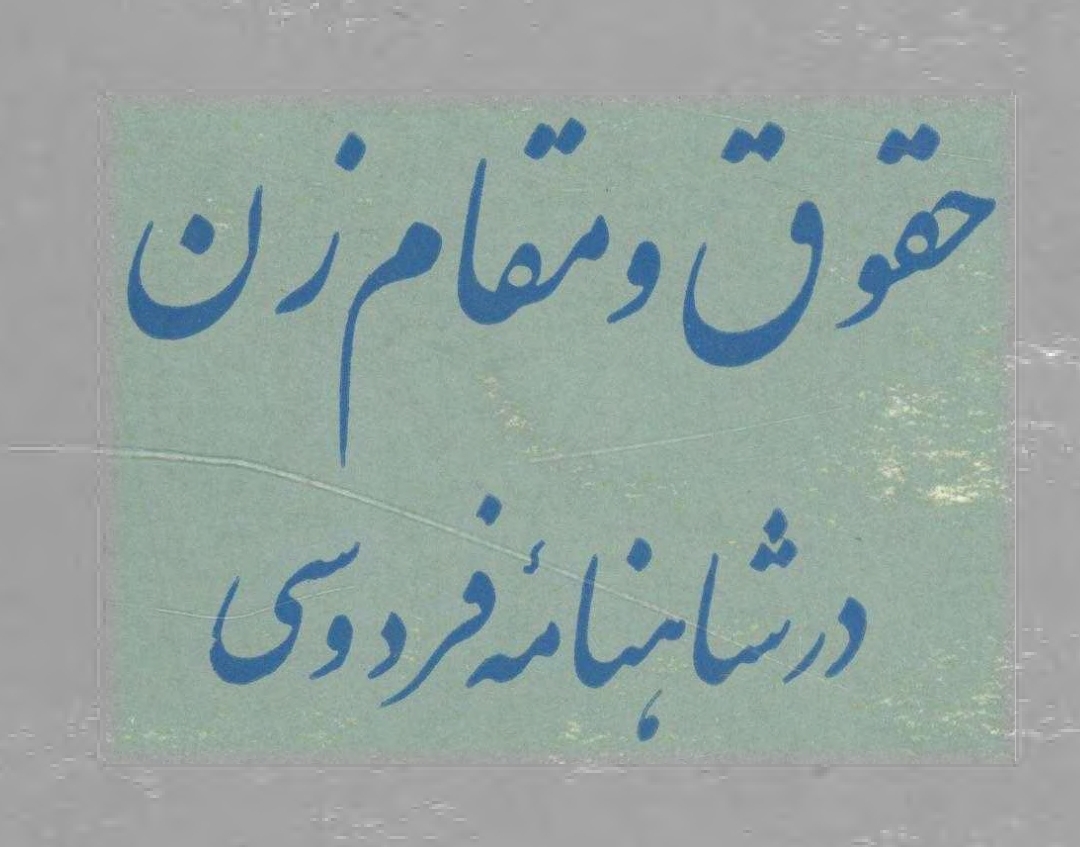 حقوق و مقام زن
در شاهنامهٔ فردوسی